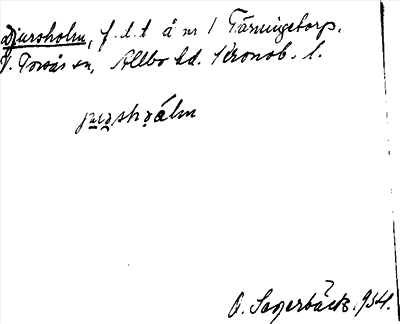 Djursholm, f.l.t å nr 1 Tärningetorp,
V. Torsås sn, Allbo hd. Kronob. l.
O. Sagerbäck. 1934.